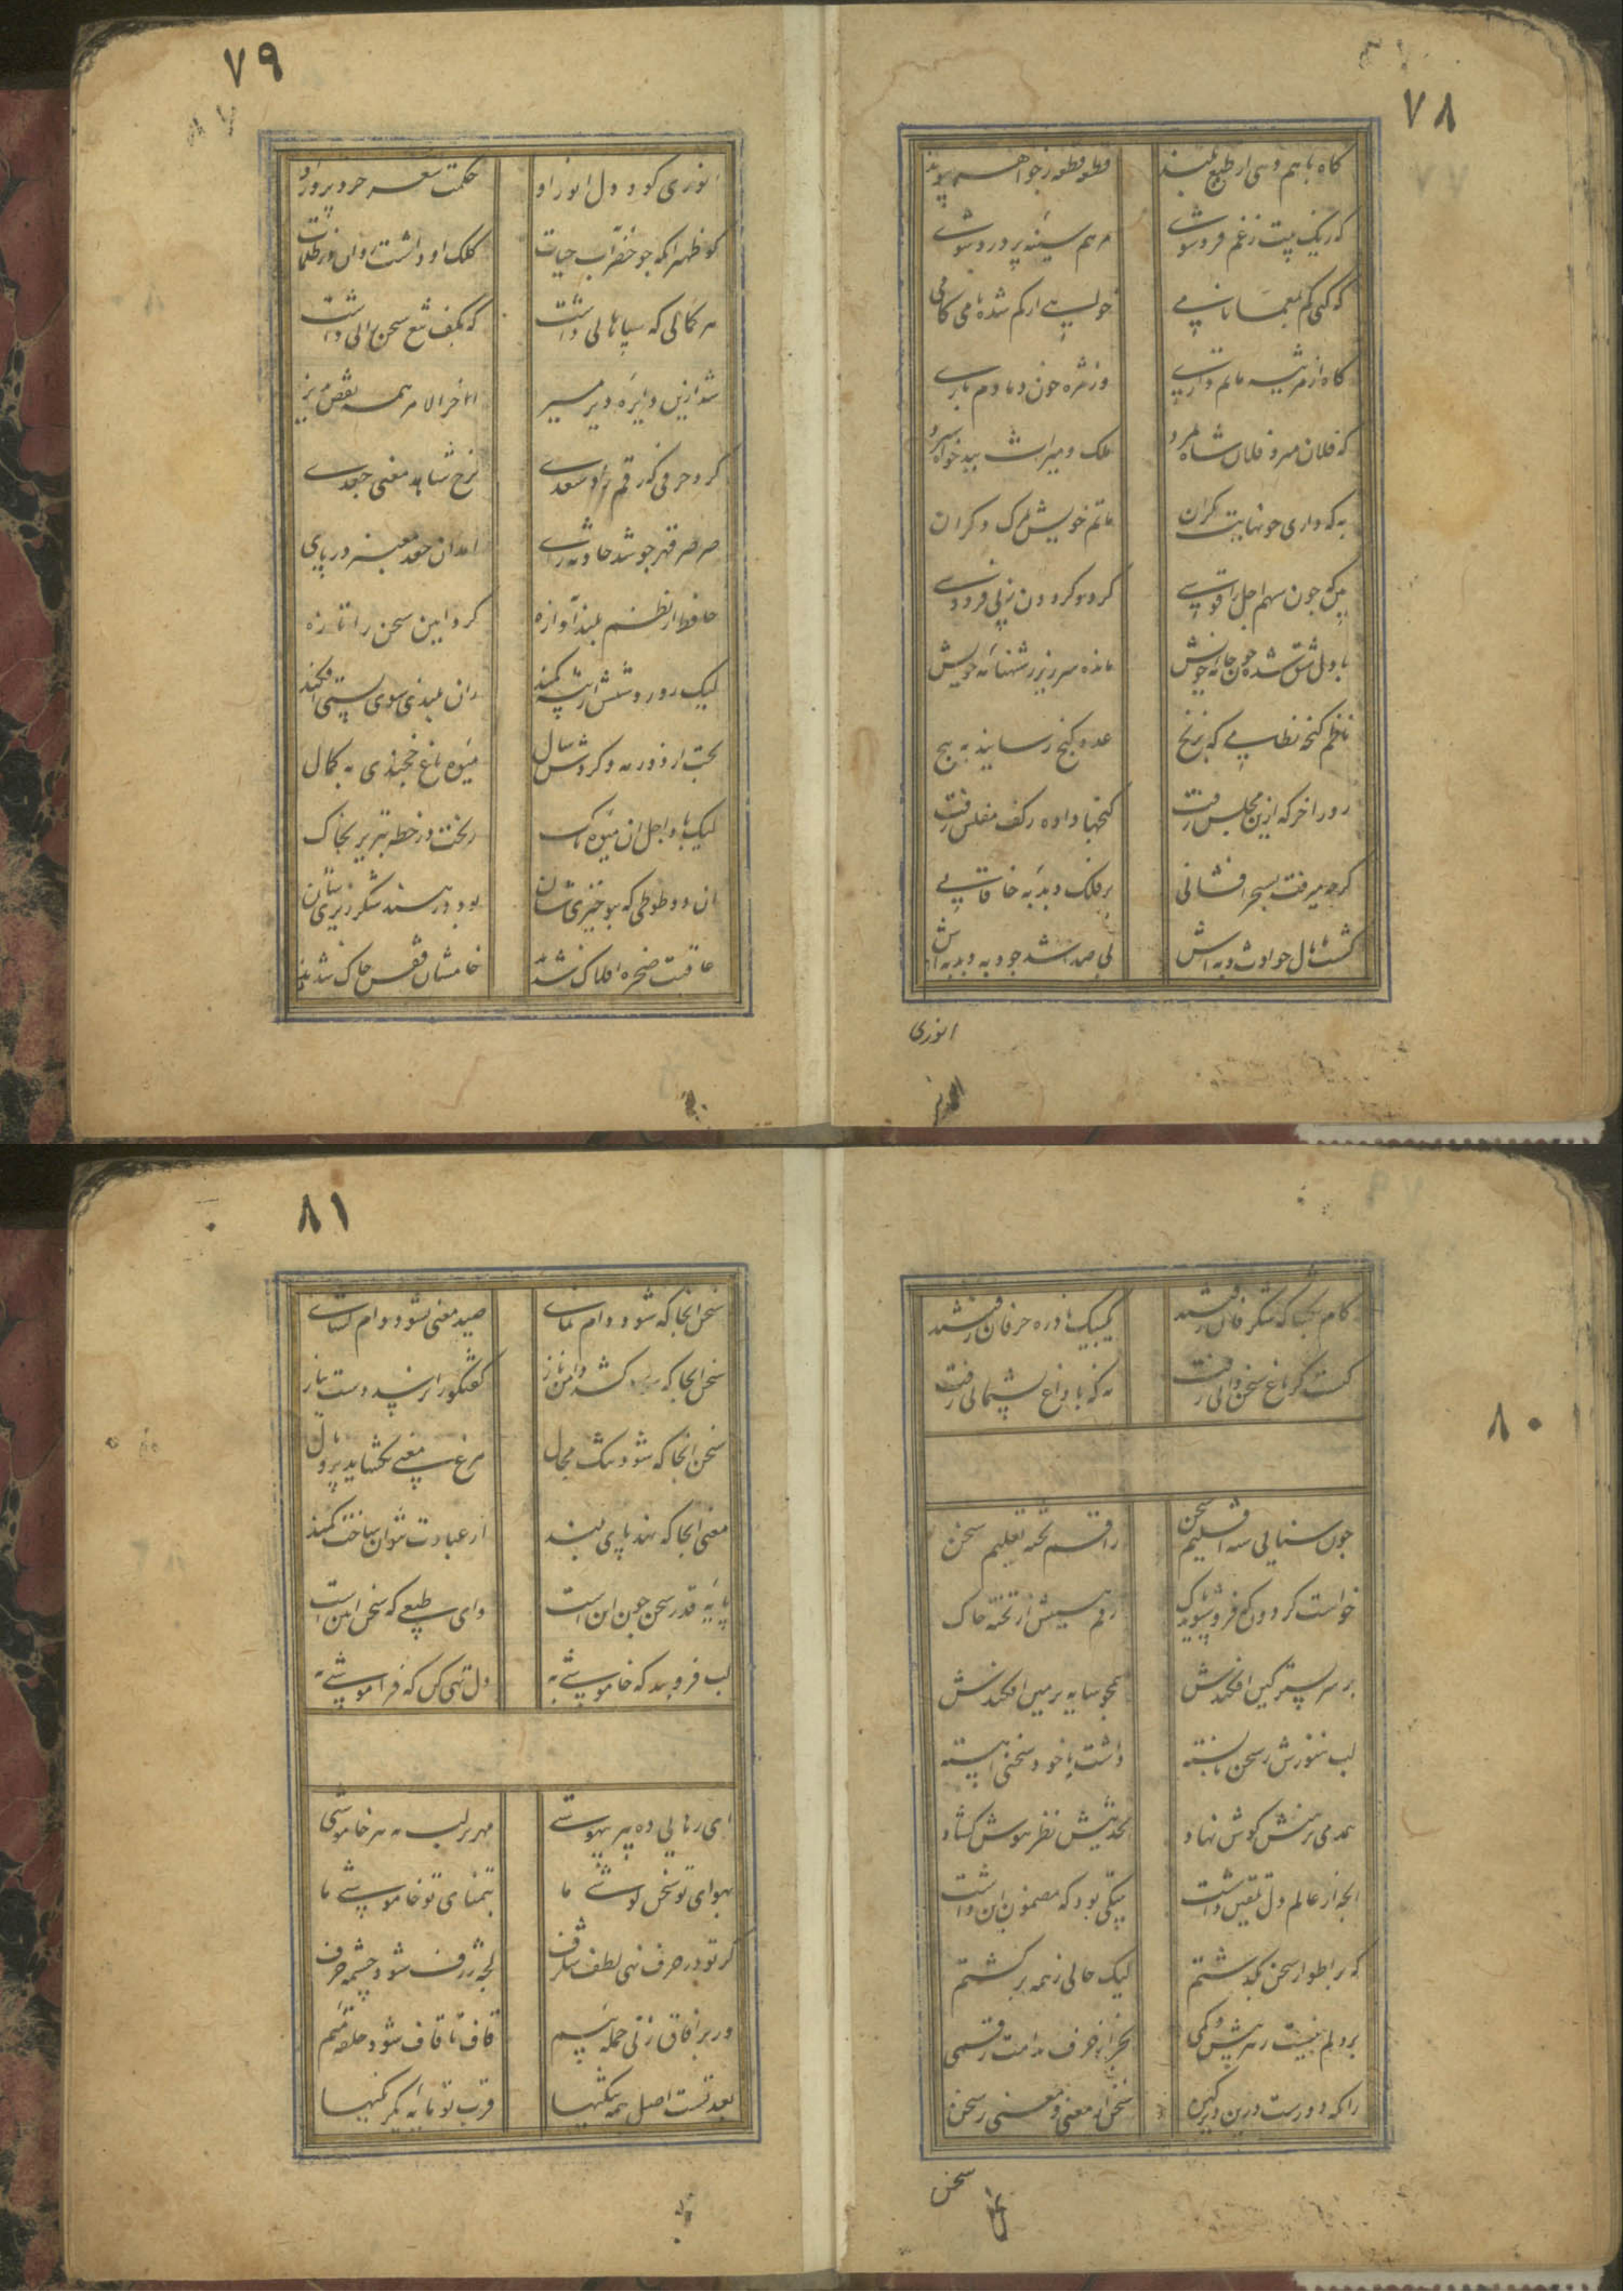 ۷۸
کاه باهم دهی از طبع بلند قطعه قطعه ز جواهر پیوند
که ز یک بیت ز غم فرد شوی مرهم سینه پر درد شوی
که کنی کم بمعما نامی جویی از کم شده نامی کامی
کاه از مرثیه ماتم داری وز مژه خون دمادم باری
که فلان مرد و فلان شاه مرد ملک و میراث به بدخواه سپرد
به که داری چو نهایت نکران ماتم خویش بمرک دکران
پی چون سهم اجل را قوسی کرد کردون ز پی فردوسی
با دل شق شده چون خامه خویش مانده سر زیر ز شهنامه خویش
ناظم کنجه نظامی که برنج عدد کنج رسانید به پنج
روز آخر که ازین مجلس رفت کنجها داده ز کف مفلس رفت
کرچه میرفت بسحر افشانی بر فلک دبدبه خاقانی
کشت پامال حوادث دبه‌اش بی صدا شد چو دبه دبدبه‌اش
انوری
۷۹
انوری کو و دل انور او حکمت شعر خرد پرور او
کو ظهیر انکه چو خضر آب حیات کلک او داشت روان در ظلمات
هر کمالی که سپاهانی داشت که بکف تیغ سخن رانی داشت
شد ازین دایره دیر مسیر آخر الامر همه نقص پذیر
کرد حرفی که رقم زد سعدی رخ شاهد معنی جعدی
صرصر قهر چو شد حادثه زای آمد آن جعد معنبر در پای
حافظ از نظم بلند آوازه کرد آیین سخن را تازه
لیک روز و شبش از پیشه کمند زان بلندی سوی پستی افکند
پخت از دور مه و کردش سال میوه باغ خجندی به کمال
لیک باد اجل آن میوه پاک ریخت در خطه تبریز بخاک
آن دو طوطی که بنوخیزیشان بود در هند شکر ریزیشان
عاقبت سخره افلاک شدند خامشان قفس خاک شدند
۸۰
کام بکشا که شکرفان رفتند یک بیک نادره حرفان رفتند
کیست کز باغ سخن دانی رفت که نه با داغ پشیمانی رفت
چون سنایی شه اقلیم سخن راقم تخته تعلیم سخن
خواست کردون که فرو شوید پاک رقم هستیش از تخته خاک
بر سر بستر کین افکندش همچو سایه بزمین افکندش
لب هنوزش ز سخن نابسته داشت با خود سخنی آهسته
همدمی بر دهنش کوش نهاد بحدیثش نظر هوش کشاد
آنچه از عالم دل تلقین داشت بیتکی بود که مضمون این داشت
که بر اطوار سخن بکذشتم لیک حالی ز همه برکشتم
بر دلم نیست ز هر بیش و کمی بجز از حرف ندامت رقمی
زانکه دورست درین دیر کهن سخن از معنی و معنی ز سخن
سخن
۸۱
سخن آنجا که شود دام نمای صید معنی نشود دام کشای
سخن آنجا که کشد دامن ناز گفتگو را نرسد دست نیاز
سخن آنجا که شود تنک مجال مرغ معنی نکشاید پر و بال
معنی آنجا که نهد پای بلند از عبارت نتوان ساخت کمند
پایه قدر سخن چون این است وای طبعی که سخن آیین است
لب فرو بند که خاموشی به دل تهی کن که فراموشی به
ای رهایی ده هر بیهوشی مهر بر لب نه هر خاموشی
بهوای تو سخن کوشی ما بتمنای تو خاموشی ما
کر تو در حرف نهی لطف شکرف لجه ژرف شود چشمه حرف
ور بر آفاق زنی حمله بیم قاف تا قاف شود حلقه میم
بعد تست اصل همه تنکیها قرب تو مایه یکرنکیها